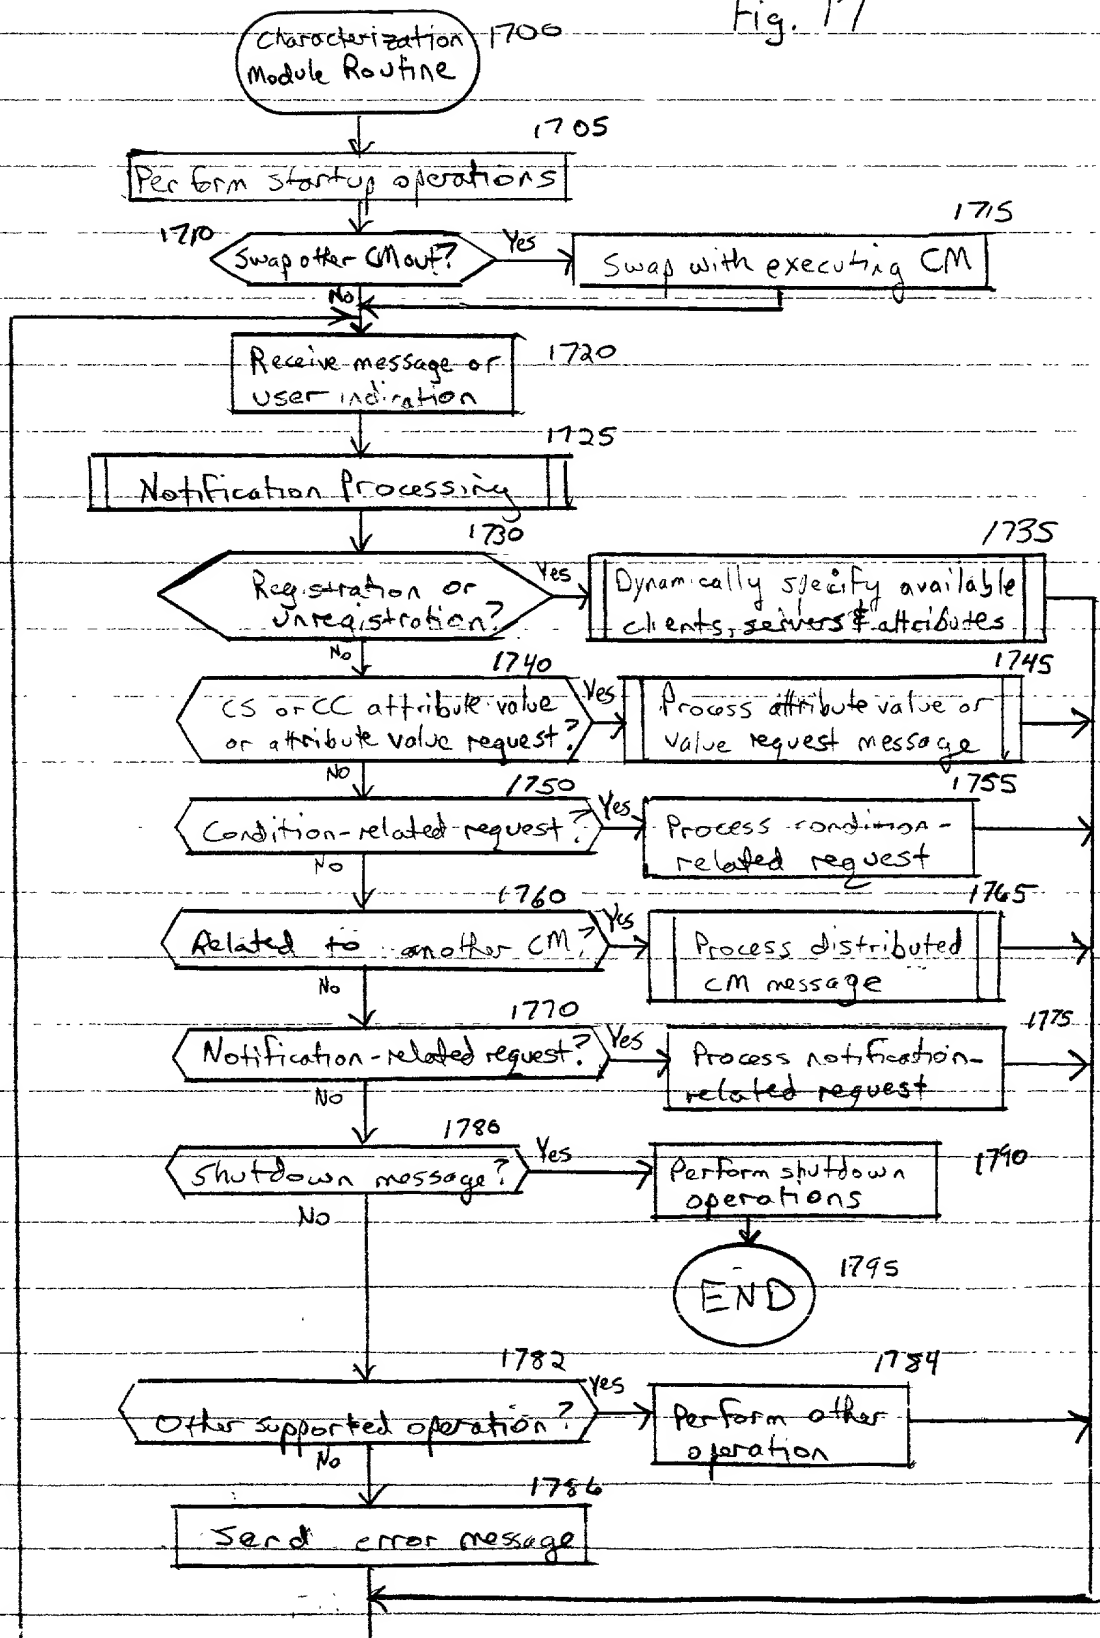 Fig. 17
Characterization
Module Routine
1700
1705
Perform startup operations
1710
Swap other CM out?
Yes
1715
Swap with executing CM
No
Receive message or
user indication
1720
1725
Notification Processing
1730
Registration or
unregistration?
Yes
1735
Dynamically specify available
clients, servers & attributes
No
1740
CS or CC attribute value
or attribute value request?
Yes
1745
Process attribute value or
value request message
No
1750
Condition-related request?
Yes
1755
Process condition-
related request
No
1760
Related to another CM?
Yes
1765
Process distributed
CM message
No
1770
Notification-related request?
Yes
1775
Process notification-
related request
No
1780
Shutdown message?
Yes
1790
Perform shutdown
operations
No
1795
END
1782
Other supported operation?
Yes
1784
Perform other
operation
No
1786
Send error message